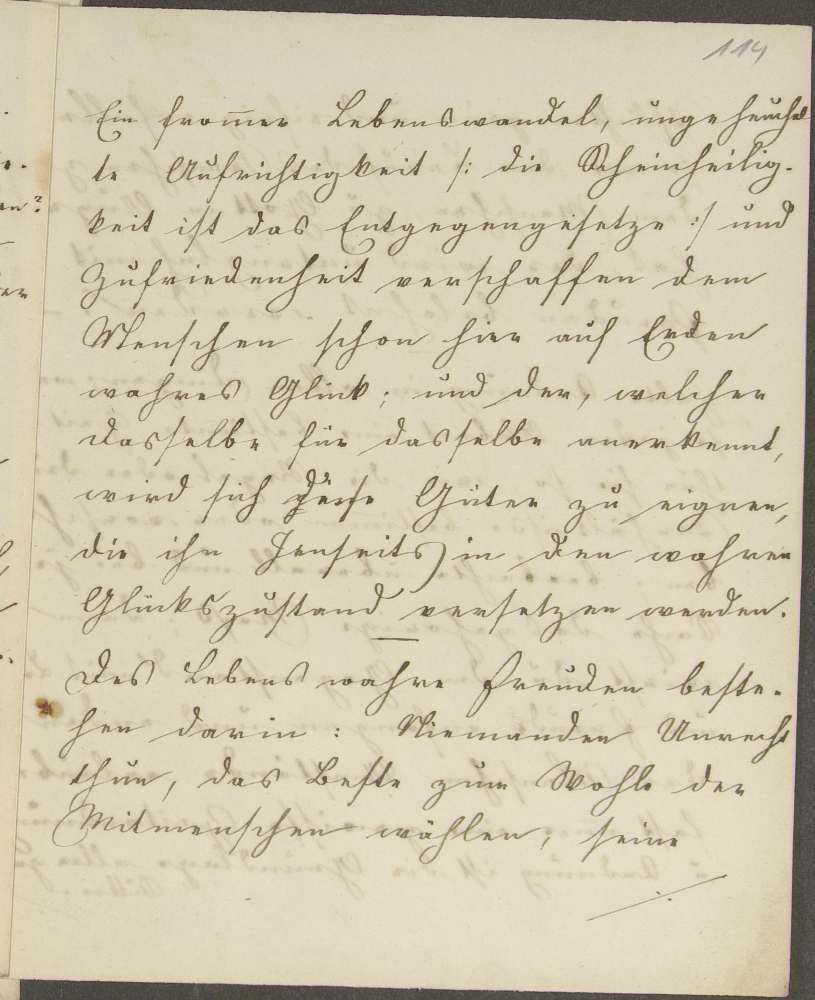 114
Ein from̅er Lebenswandel, ungeheuchel
te Aufrichtigkeit /: die Scheinheilig-
keit ist das Entgegengesetze :/ und
Zufriedenheit verschaffen dem
Menschen schon hier auf Erden
wahres Glück; und der, welcher
dasselbe für dasselbe anerkennt,
wird sich Güter zu eignen,
die ihn Jenseits) in den wahren
Glückszustand versetzen werden.
Des Lebens wahre Freuden beste-
hen darin: Niemanden Unrecht
thun, das Beste zum Wohle der
Mitmenschen wählen, seine